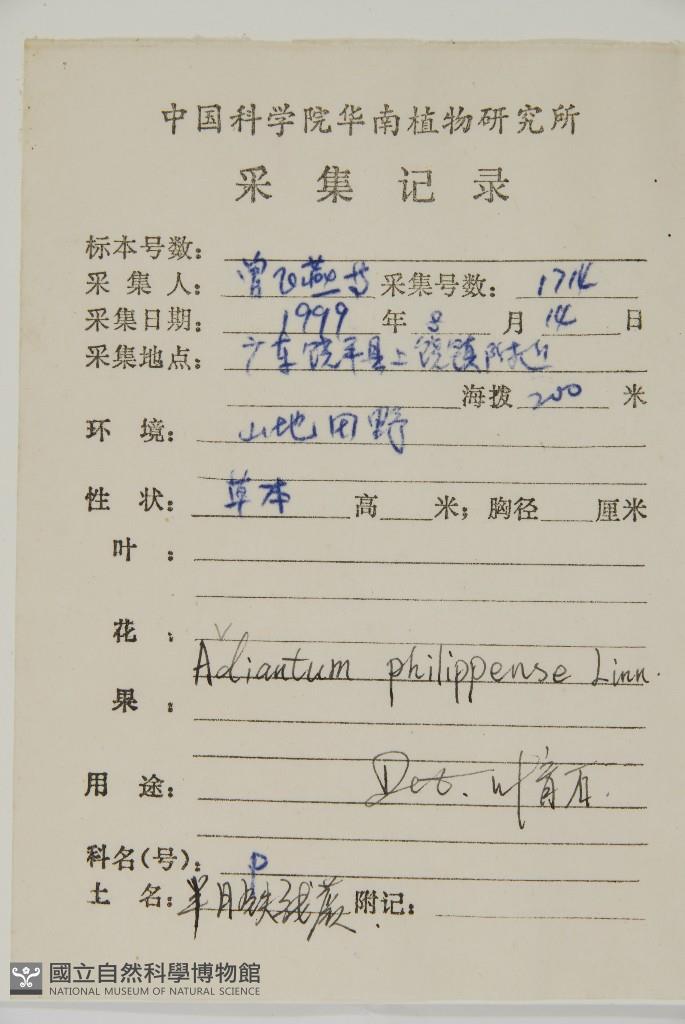 中国科学院华南植物研究所
采集记录
标本号数:
采集人: 曾飞燕等 采集号数: 1714
采集日期: 1999 年 8 月 14 日
采集地点: 广东饶平县上饶镇附近
海拨 200 米
环境: 山地田野
性状: 草本 高 米; 胸径 厘米
叶:
花:
Adiantum philippense Linn.
果:
Det. 叶育石.
用途:
科名(号): P
土名: 半月铁线蕨 附记:
國立自然科學博物館
NATIONAL MUSEUM OF NATURAL SCIENCE